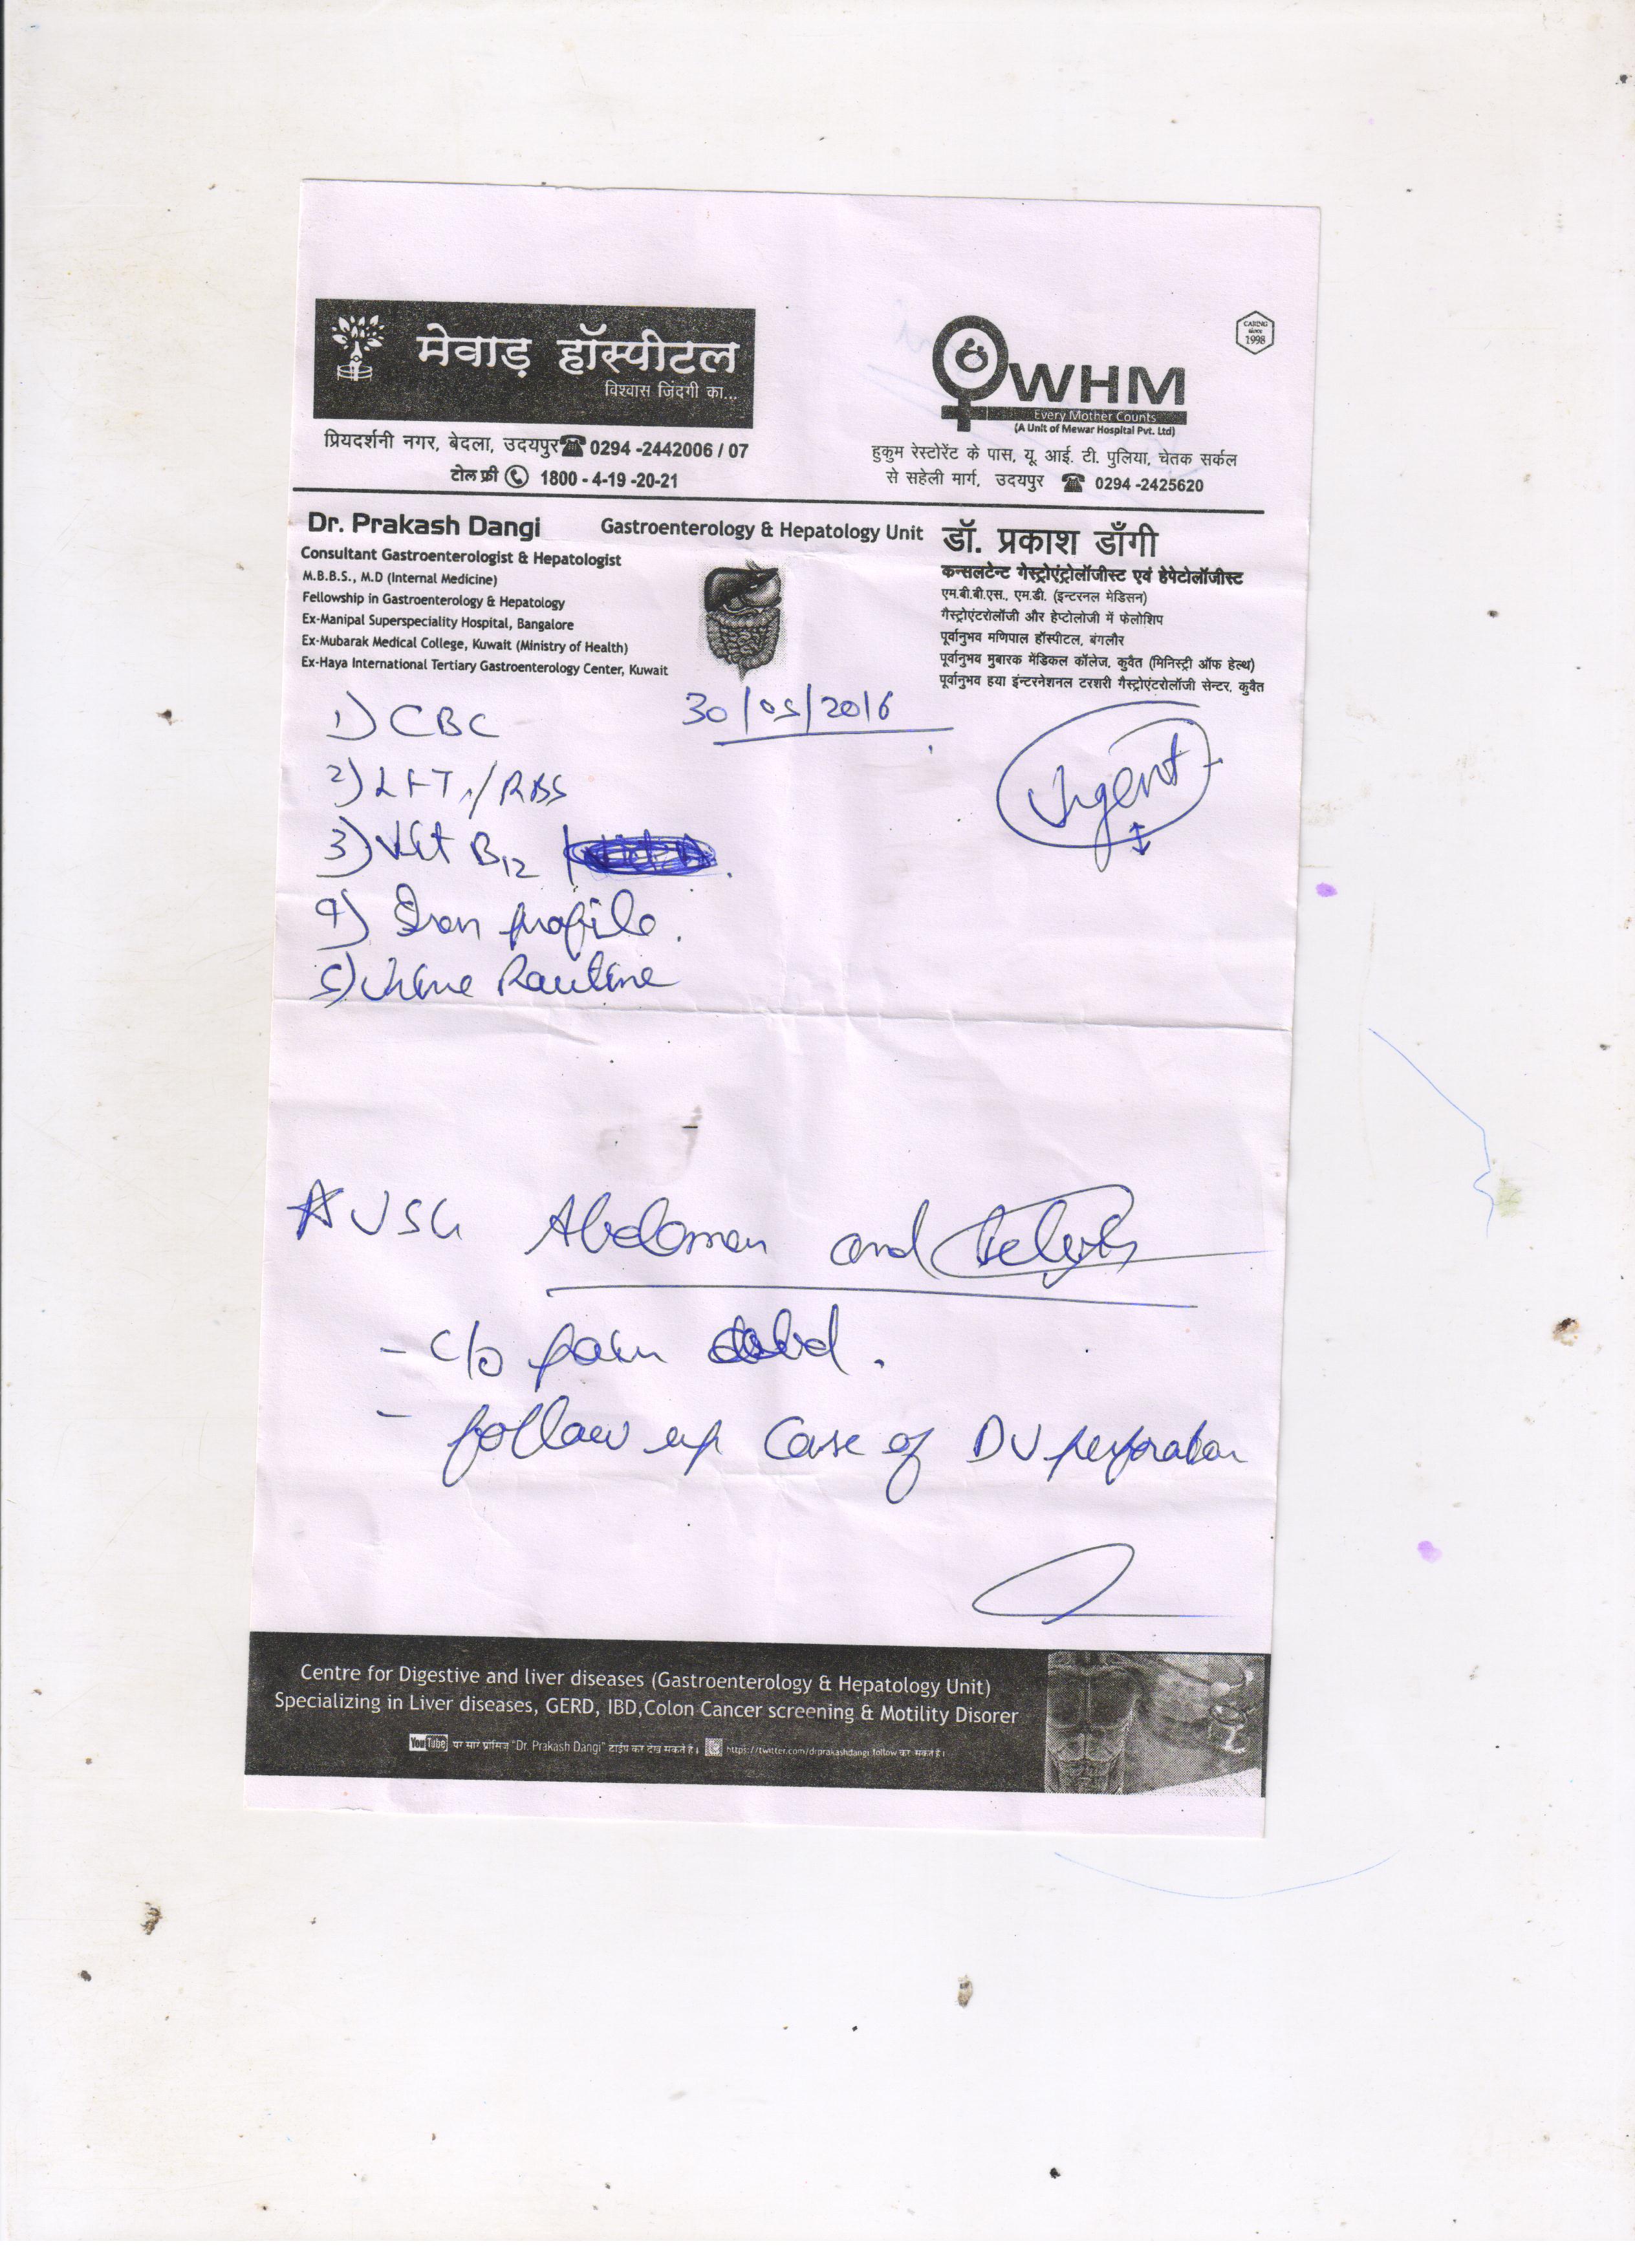 मेवाड़ हॉस्पीटल
विश्वास जिंदगी का...
प्रियदर्शनी नगर, बेदला, उदयपुर 0294 -2442006 / 07
टोल फ्री 1800 - 4-19 -20-21
WHM
Every Mother Counts
(A Unit of Mewar Hospital Pvt. Ltd)
CARING
since
1998
हुकुम रेस्टोरेंट के पास, यू. आई. टी. पुलिया, चेतक सर्कल
से सहेली मार्ग, उदयपुर 0294 -2425620
Dr. Prakash Dangi
Consultant Gastroenterologist & Hepatologist
M.B.B.S., M.D (Internal Medicine)
Fellowship in Gastroenterology & Hepatology
Ex-Manipal Superspeciality Hospital, Bangalore
Ex-Mubarak Medical College, Kuwait (Ministry of Health)
Ex-Haya International Tertiary Gastroenterology Center, Kuwait
Gastroenterology & Hepatology Unit
डॉ. प्रकाश डाँगी
कन्सलटेन्ट गेस्ट्रोएंट्रोलॉजीस्ट एवं हेपेटोलॉजीस्ट
एम.बी.बी.एस., एम.डी. (इन्टरनल मेडिसन)
गैस्ट्रोएंटरोलॉजी और हेप्टोलोजी में फेलोशिप
पूर्वानुभव मणिपाल हॉस्पीटल, बंगलौर
पूर्वानुभव मुबारक मेडिकल कॉलेज, कुवैत (मिनिस्ट्री ऑफ हेल्थ)
पूर्वानुभव हया इंन्टरनेशनल टरशरी गैस्ट्रोएंटरोलॉजी सेन्टर, कुवैत
30/05/2016
Urgent
1) CBC
2) LFT / RBS
3) Vit B12
4) Iron profile.
5) Urine Routine
USG Abdomen and Pelvis
- c/o pain abd.
- follow up case of DU perforation
Centre for Digestive and liver diseases (Gastroenterology & Hepatology Unit)
Specializing in Liver diseases, GERD, IBD,Colon Cancer screening & Motility Disorer
YouTube पर सारे प्रोग्राम "Dr. Prakash Dangi" टाईप कर देख सकते है। https://twitter.com/drprakashdangi follow कर सकते है।